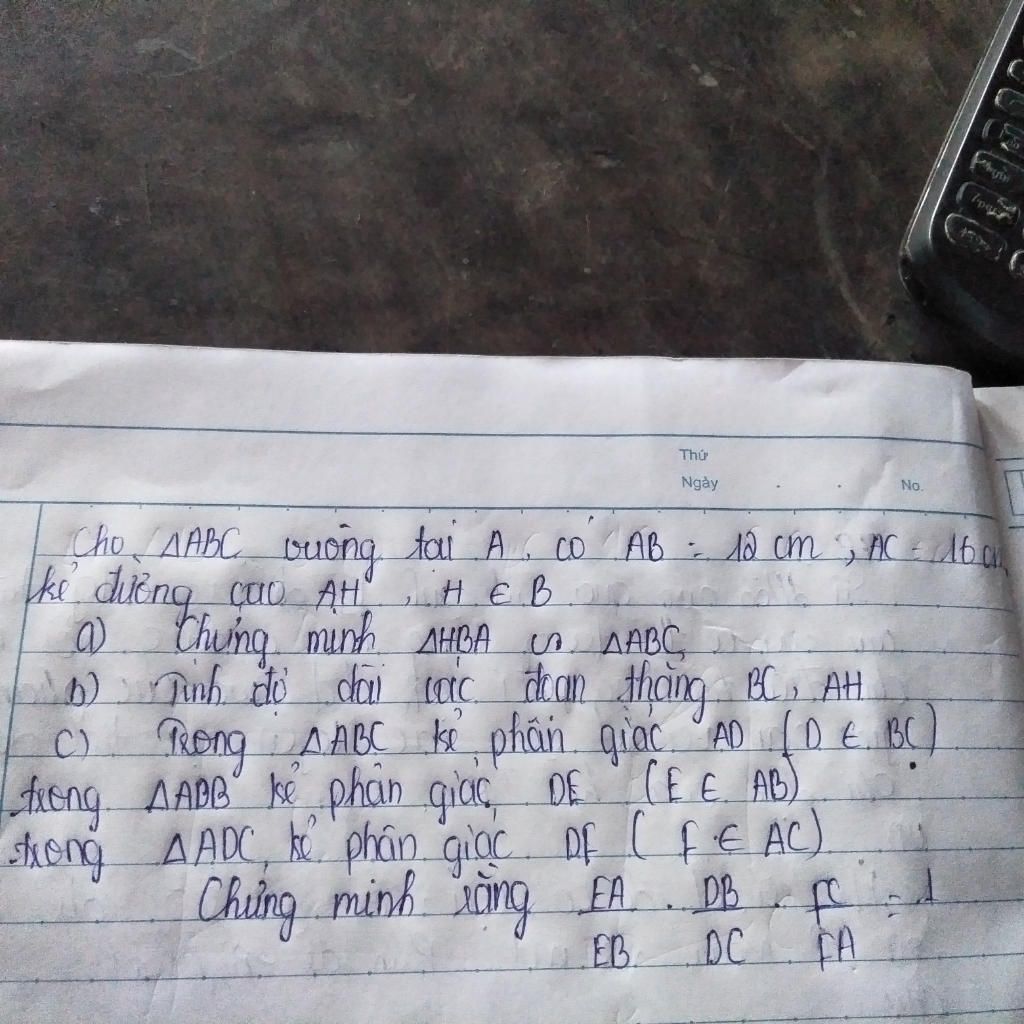 Thứ
Ngày . . No.
Cho ΔABC vuông tại A, có AB = 12 cm, AC = 16 cm,
kẻ đường cao AH, H ∈ B
a) Chứng minh ΔHBA ∽ ΔABC
b) Tính độ dài các đoạn thẳng BC, AH
c) Trong ΔABC kẻ phân giác AD (D ∈ BC)
trong ΔADB kẻ phân giác DE (E ∈ AB)
trong ΔADC, kẻ phân giác DF (F ∈ AC)
Chứng minh rằng EA/EB . DB/DC . FC/FA = 1